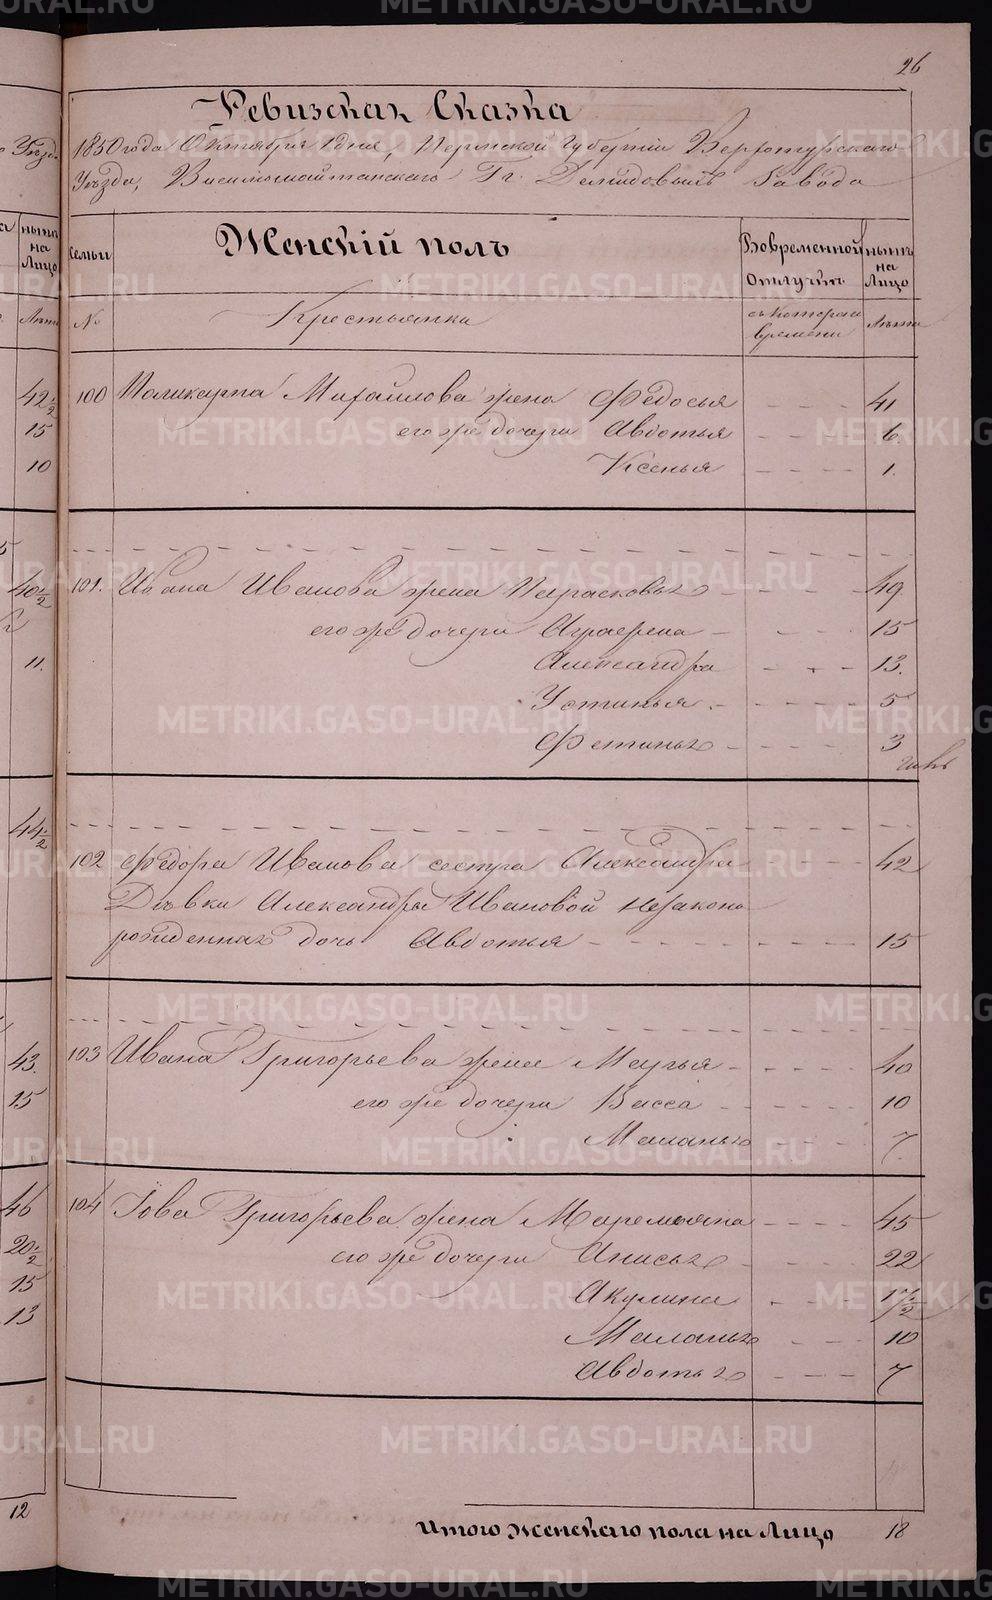 26
Ревизская Сказка
1850 года Октября 1 дня, Пермской Губернiи Верхотурскаго
Уѣзда, Висимошайтанскаго Гг. Демидовыхъ Завода
Семьи
Женскiй полъ
Во временной отлучкѣ
нынѣ на Лицо
№
Крестьянка
съ котораго времени
Лѣта
100 Поликарпа Михайлова жена Федосья - - - 41
его же дочери Авдотья - - - 6.
Ксенья - - - 1.
101. Ивана Иванова жена Парасковья - - - 49
его же дочери Аграфена - - - 15
Александра - - - 13.
Устинья - - - 5
Фетинья - - - 3
102 Федора Иванова сестра Александра - - - 42
Дѣвки Александры Ивановой незаконо
рожденная дочь Авдотья - - - 15
103 Ивана Григорьева жена Марья - - - 40
его же дочери Васса - - - 10
Маланья - - - 7.
104 Iова Григорьева жена Маремьяна - - - 45
его же дочери Анисья - - - 22
Акулина - - - 17 1/2
Маланья - - - 10
Авдотья - - - 7
Итого женскаго пола на Лицо 18
Уѣзд
нынѣ на Лицо
Лѣта
42 1/2
15
10
40 1/2
11.
44 1/2
43.
15
46
20 1/2
15
13
12
METRIKI.GASO-URAL.RU